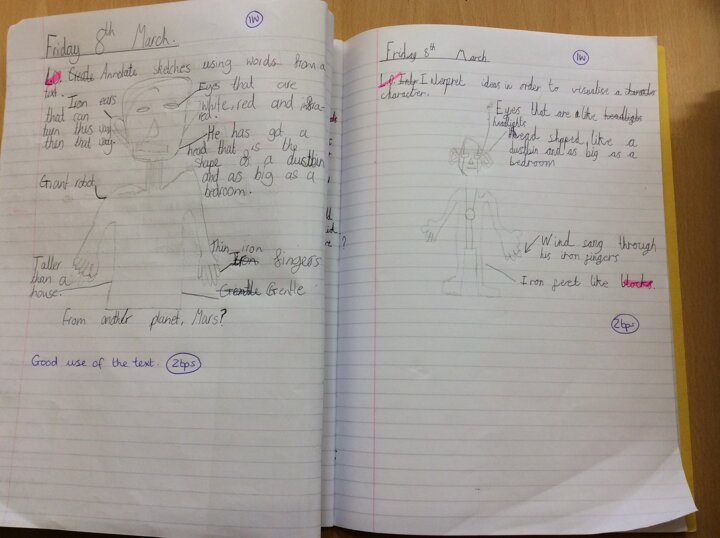 IW
Friday 8th March.
L.O Create Annotate sketches using words from a
text.
Iron ears
that can
turn this way
then that way.
Eyes that are
white, red and infra
red.
He has got a
head that is the
shape of a dustbin
and as big as a
bedroom.
Giant robot
Thin iron
Iron fingers
Taller
than a
house.
Gentle Gentle
From another planet, Mars?
Good use of the text. 2bps
IW
Friday 8th March
L.O Interpret ideas in order to visualise a character
character.
Eyes that are like headlights
headlights
Head shaped like a
dustbin and as big as a
bedroom
Wind sang through
his iron fingers
Iron feet like blocks.
2bps